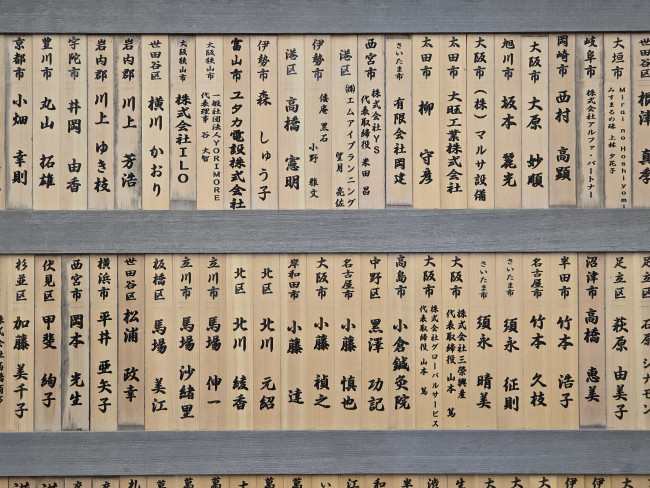 根津 真季
大垣市 Mirai no Hoshiyomi
みすまるの珠 上林 夕花子
岐阜市 株式会社アルファ・パートナー
岡崎市 西村 高顕
大阪市 大原 妙順
旭川市 坂本 麗光
大阪市 (株)マルサ設備
太田市 大旺工業株式会社
太田市 柳 守彦
さいたま市 有限会社岡建
西宮市 株式会社YS
代表取締役 米田 昌
港区 ㈱エムアイプランニング
望月 亮佐
伊勢市 倭庵 黒石
小野 雅文
港区 高橋 憲明
伊勢市 森 しゅう子
富山市 ユタカ電設株式会社
大阪狭山市 一般社団法人YORIMORE
代表理事 谷 大智
大阪狭山市 株式会社ILO
世田谷区 横川 かおり
岩内郡 川上 芳浩
岩内郡 川上 ゆき枝
宇陀市 井岡 由香
豊川市 丸山 拓雄
京都市 小畑 幸則
足立区 石原 シナモン
足立区 萩原 由美子
沼津市 高橋 恵美
半田市 竹本 浩子
名古屋市 竹本 久枝
さいたま市 須永 征則
さいたま市 須永 晴美
大阪市 株式会社三榮興産
代表取締役 山本 篤
大阪市 株式会社グローバルサービス
代表取締役 山本 篤
高島市 小倉鍼灸院
中野区 黒澤 功記
名古屋市 小藤 慎也
大阪市 小藤 禎之
岸和田市 小藤 達
北区 北川 元紹
北区 北川 綾香
立川市 馬場 伸一
立川市 馬場 沙緒里
板橋区 馬場 美江
世田谷区 松浦 政幸
横浜市 平井 亜矢子
西宮市 岡本 光生
伏見区 甲斐 絢子
杉並区 加藤 美千子